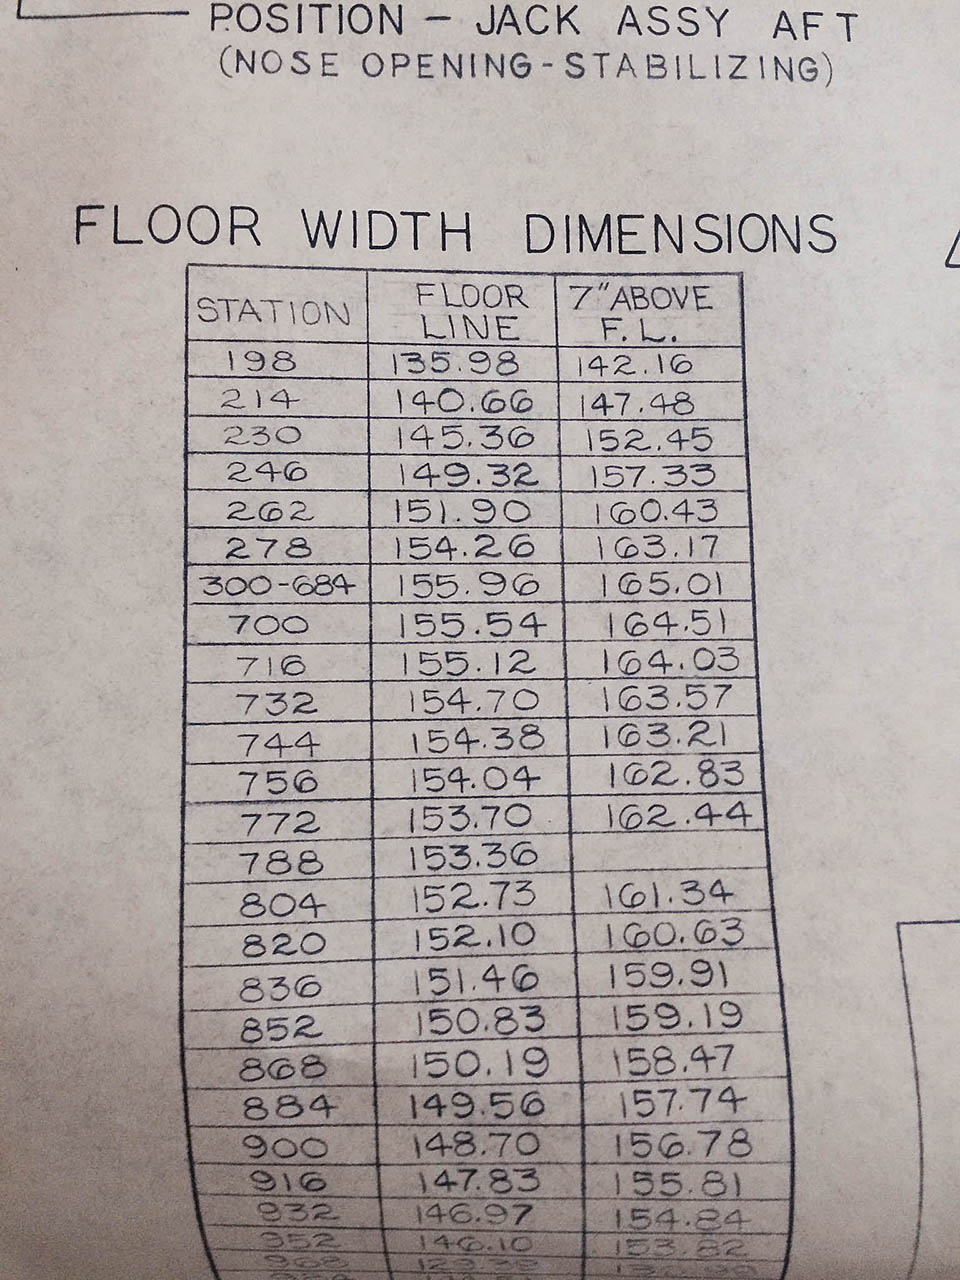 POSITION - JACK ASSY AFT
(NOSE OPENING-STABILIZING)
FLOOR WIDTH DIMENSIONS
STATION FLOOR LINE 7" ABOVE F.L.
198 135.98 142.16
214 140.66 147.48
230 145.36 152.45
246 149.32 157.33
262 151.90 160.43
278 154.26 163.17
300-684 155.96 165.01
700 155.54 164.51
716 155.12 164.03
732 154.70 163.57
744 154.38 163.21
756 154.04 162.83
772 153.70 162.44
788 153.36
804 152.73 161.34
820 152.10 160.63
836 151.46 159.91
852 150.83 159.19
868 150.19 158.47
884 149.56 157.74
900 148.70 156.78
916 147.83 155.81
932 146.97 154.84
952 146.10 153.82